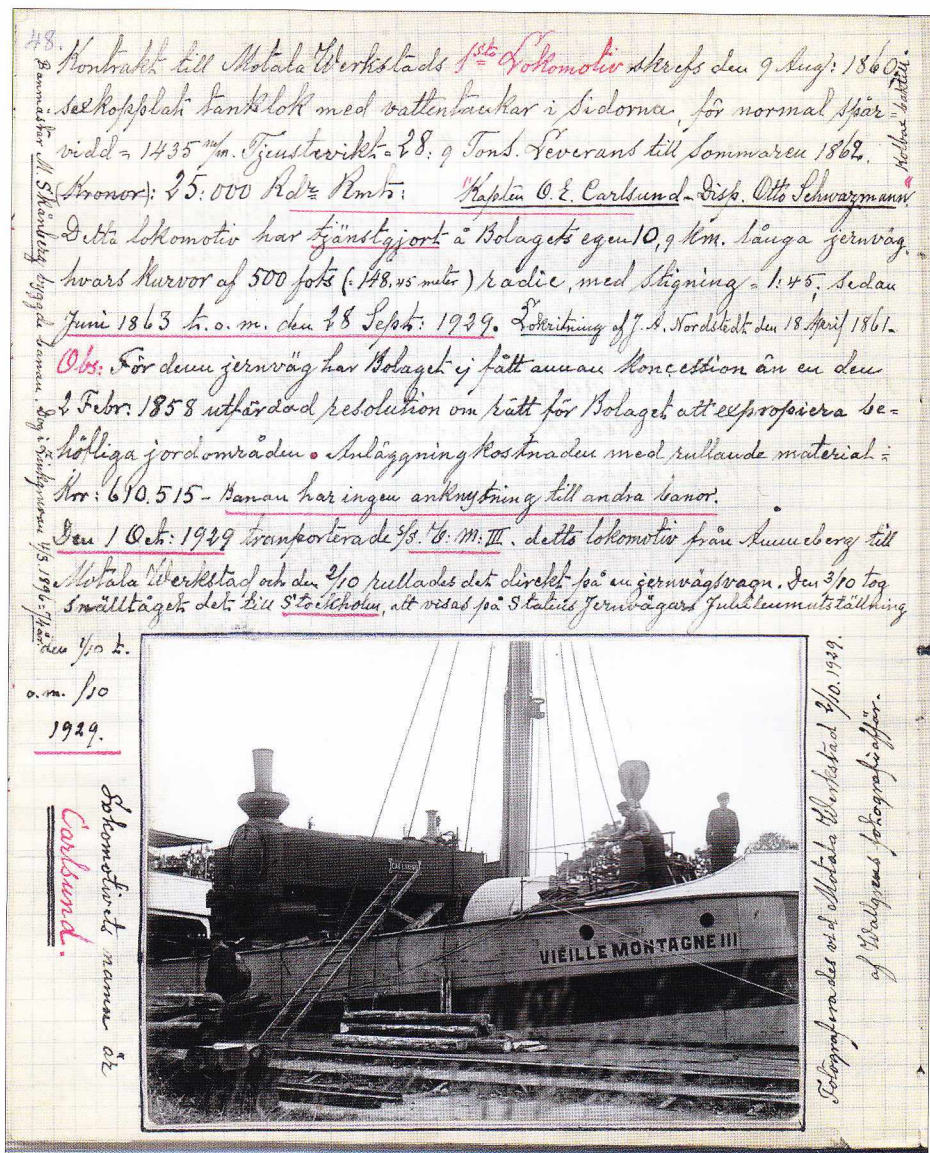 48.
Kontrakt till Motala Werkstads 1sta Lokomotiv skrefs den 9 Aug: 1860,
sexkopplat tanklok med vattentankar i sidorna, för normal spår=
vidd = 1435 m/m. Tjenstevikt = 28:9 Tons. Leverans till Sommaren 1862.
(Kronor): 25:000 Rdr Rmt: "Kapten O. E. Carlsund - Disp. Otto Schwarzmann"
Detta lokomotiv har tjänstgjort å Bolagets egen 10,9 km. långa jernväg
hvars kurvor af 500 fots (=148,45 meter) radie, med stigning = 1:45, sedan
Juni 1863 t.o.m. den 28 Sept: 1929. Lokritning af J. A. Nordstedt den 18 April 1861-
Obs: För denn jernväg har Bolaget ej fått annan koncession än en den
2 Febr: 1858 utfärdad resolution om rätt för Bolaget att expropiera be=
höfliga jordområden. Anläggningkostnaden med rullande material =
Krr: 610.515 - Banan har ingen anknytning till andra banor.
Den 1 Oct: 1929 tranporterade S/S. V: M: III. detts lokomotiv från Ammeberg till
Motala Werkstad och den 2/10 rullades det direkt på en jernvägsvagn. Den 3/10 tog
snälltåget det till Stockholm, att visas på Statens Jernvägars Jubileumutställning
den /10 t.
o.m. /10
1929.
Lokomotivets namn är
Carlsund.
Banmästar M. Skånberg byggde banan. Dog i Zinkgruvan 4/3. 1896 = 74 år.
VIEILLE MONTAGNE III
Fotograferades vid Motala Werkstad 2/10. 1929.
af Wallgrens fotografiaffär.